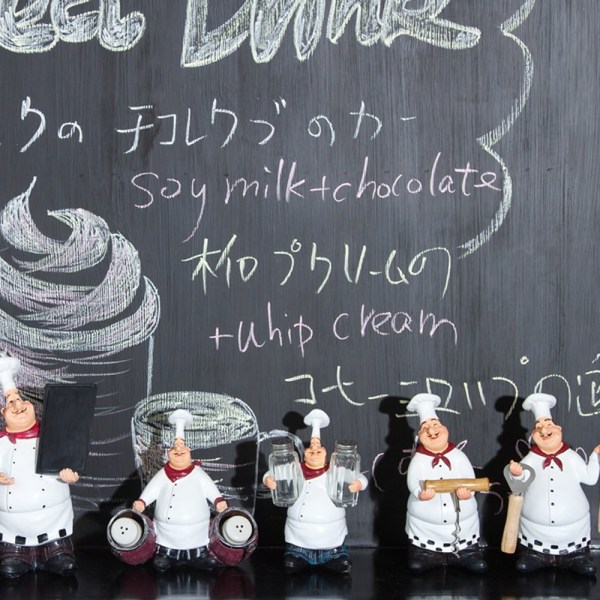 Drink
クの チコレクブのカー
soy milk+chocolate
プクリームの
+whip cream
コヒーニロップの道